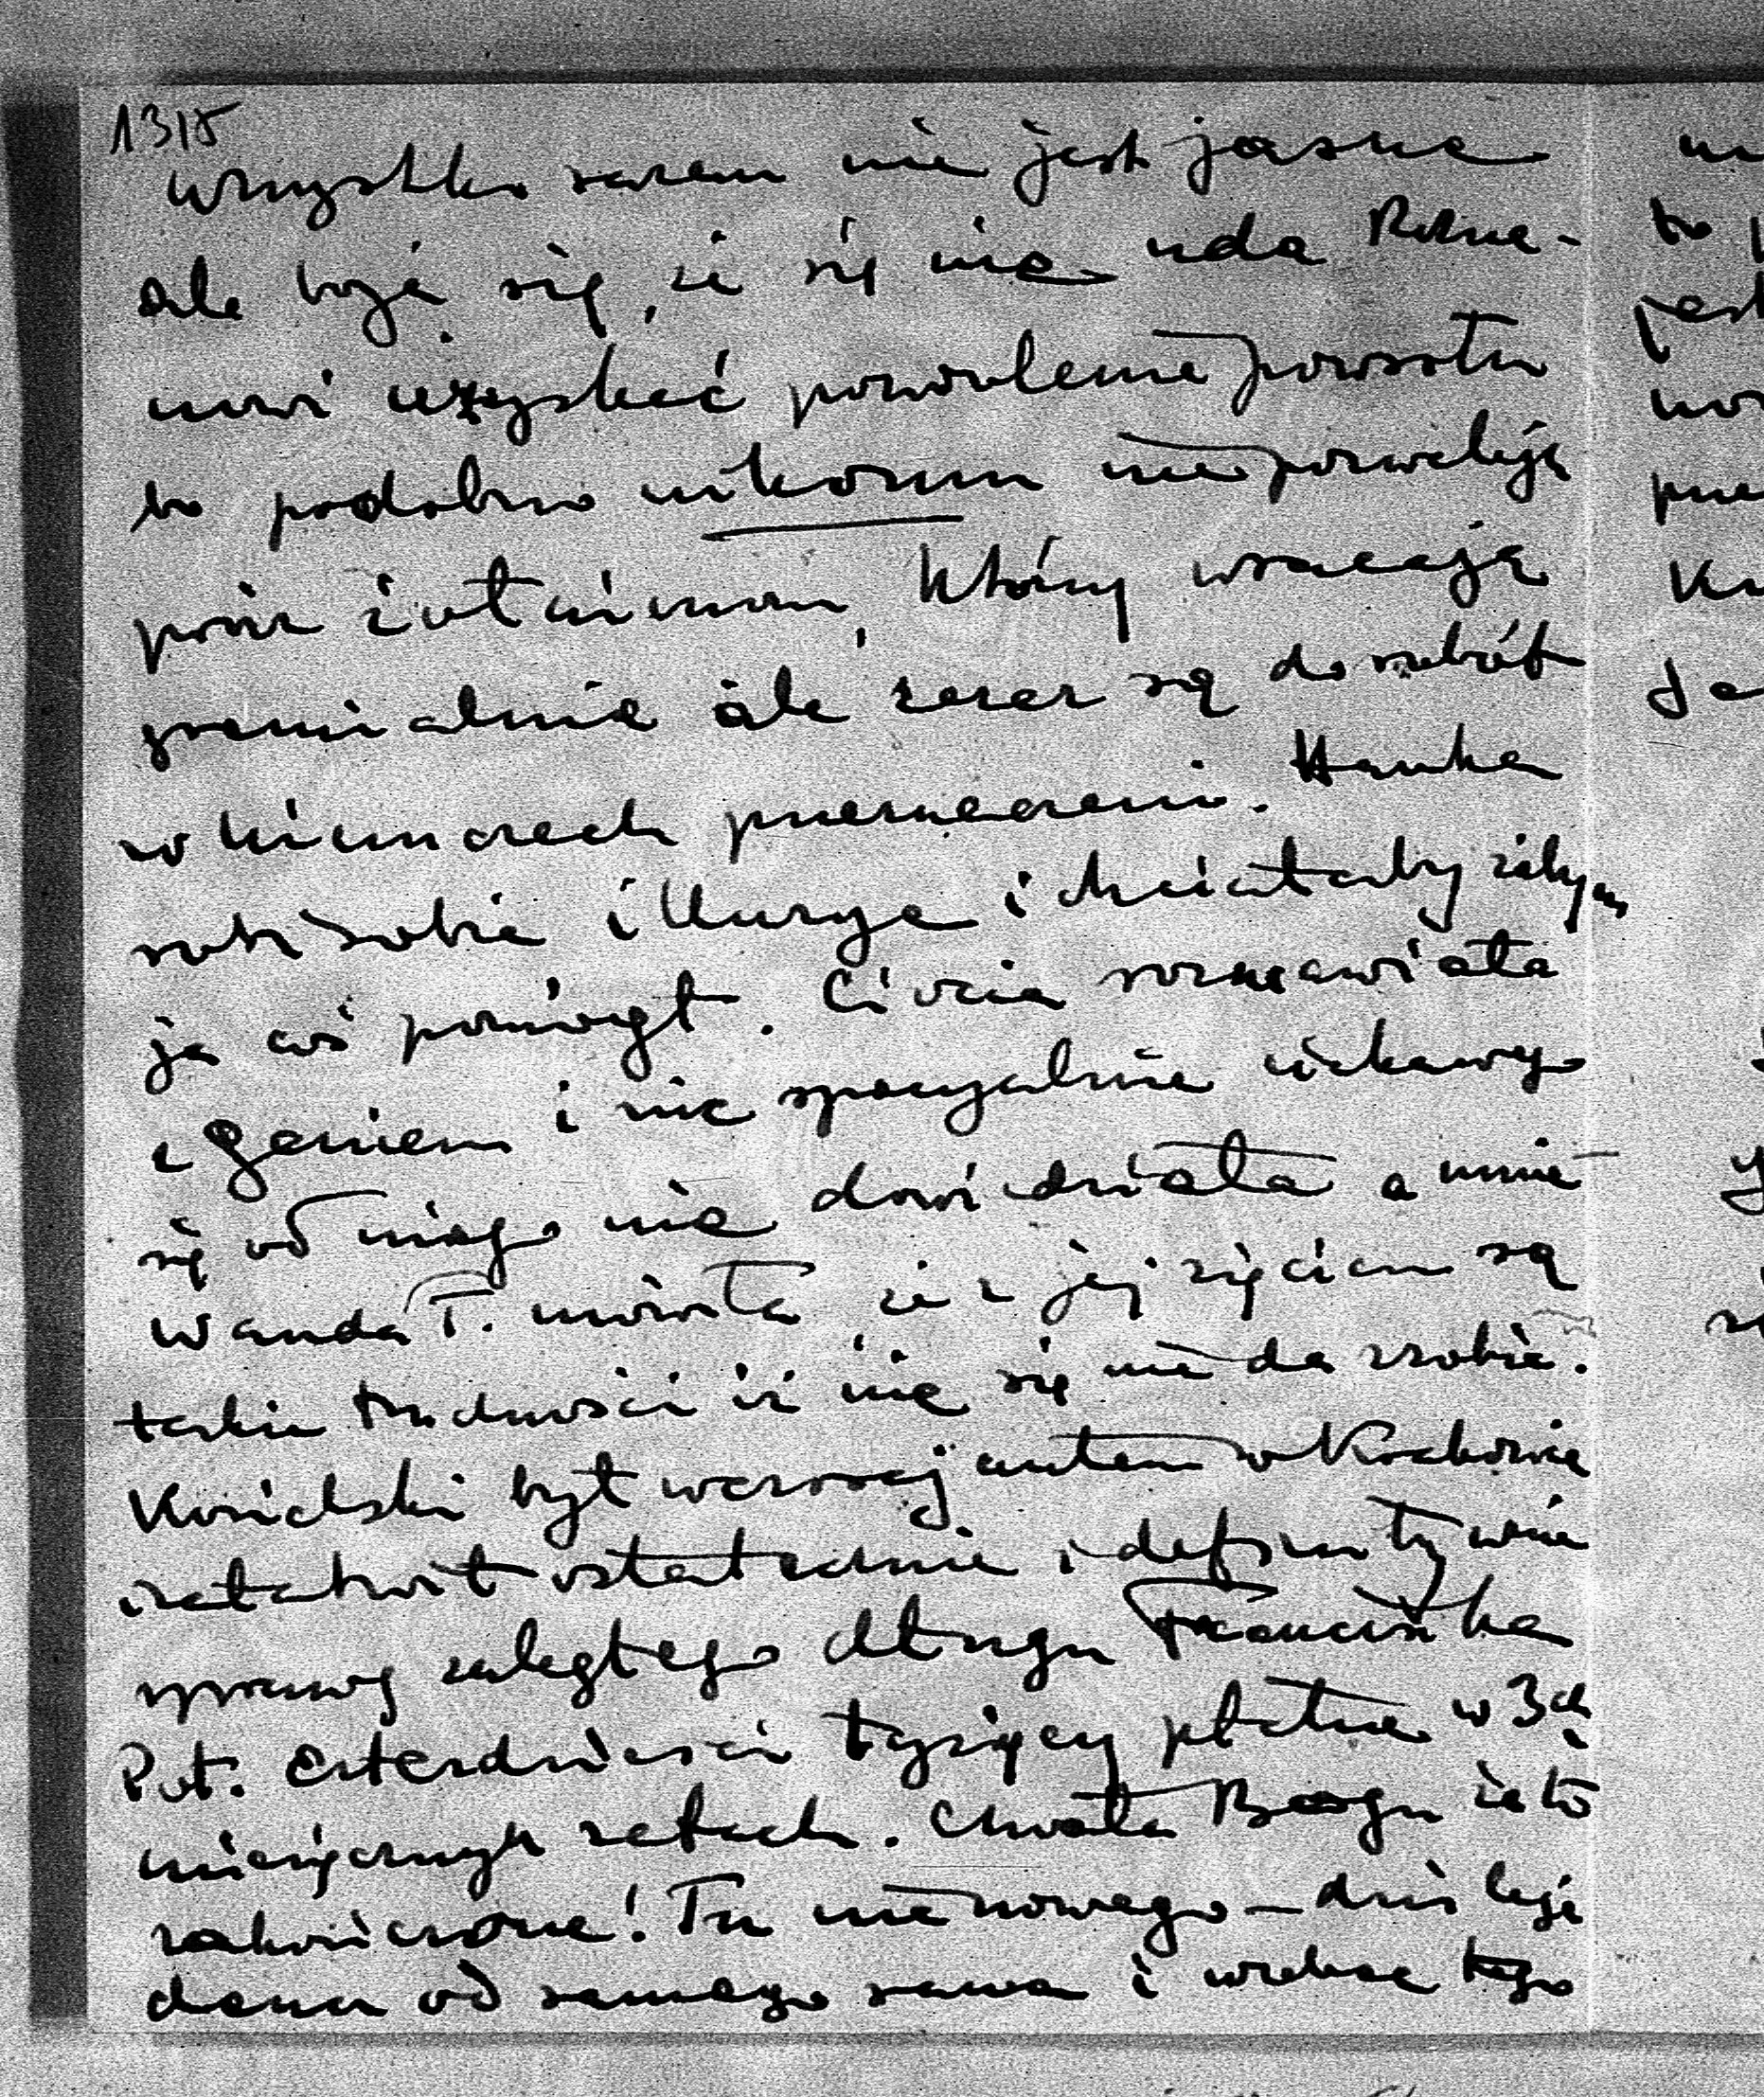 1315
wszystko razem nie jest jasne
ale boję się, że się nie uda Roma-
nowi uzyskać pozwolenie powrotu
bo podobno nikomu nie pozwalają
prócz żołnierzom, którzy wracają
gremialnie ale zaraz są do robót
w kierunach przeznaczeni. Hanka
robi sobie iluzye i chciałaby żebym
ja coś pomógł. Ciocia rozmawiała
z Geniem i nic specyalnie ciekawego
się od niego nie dowiedziała a mnie
Wanda T. mówiła, że z jej zięciem są
takie trudności iż nic się nie da zrobić.
Kosielski był wczoraj autem w Krakowie
i załatwił ostatecznie i definitywnie
sprawę zaległego długu Franciszka
Pot. czterdzieści tysięcy płatne w 3ch
miesięcznych ratach. Chwała Bogu że to
zakończone! Tu nic nowego – dziś leje
deszcz od samego rana i wobec tego